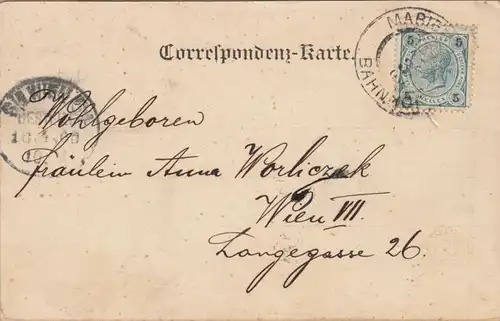 Correspondenz-Karte.
MARIE
BAHNHOF
5 5
5 5
BES
Wohlgeboren
Fräulein Anna Worliczek
Wien VIII.
Langegasse 26.